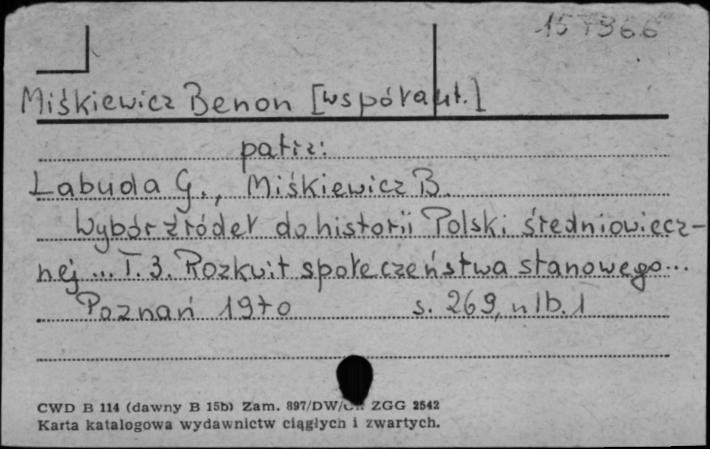 157966
Miśkiewicz Benon [współaut.]
patrz:
Labuda G., Miśkiewicz B.
Wybór źródeł do historii Polski średniowiecz-
nej ... T. 3. Rozkwit społeczeństwa stanowego...
Poznań 1970 s. 269, nlb. 1
CWD B 114 (dawny B 15b) Zam. 897/DW/ ZGG 2542
Karta katalogowa wydawnictw ciągłych i zwartych.